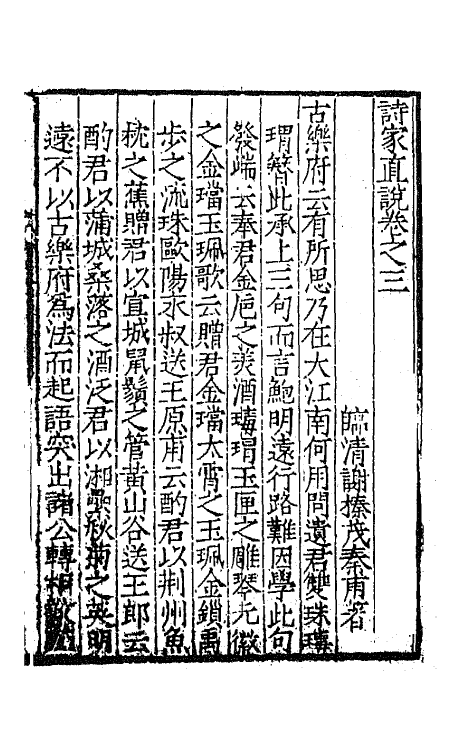 詩家直說卷之三
臨清謝榛茂秦甫著
古樂府云有所思乃在大江南何用問遺君雙珠瑇
瑁簪此承上三句而言鮑明遠行路難因學此句
發端云奉君金巵之羙酒瑇瑁玉匣之雕琴元微
之金璫玉珮歌云贈君金璫太霄之玉珮金鎖禹
步之流珠歐陽永叔送王原甫云酌君以荆州魚
枕之蕉贈君以宣城鼠鬚之管黄山谷送王郎云
酌君以蒲城桑落之酒泛君以湘纍秋菊之英明
遠不以古樂府為法而起語突出諸公轉相